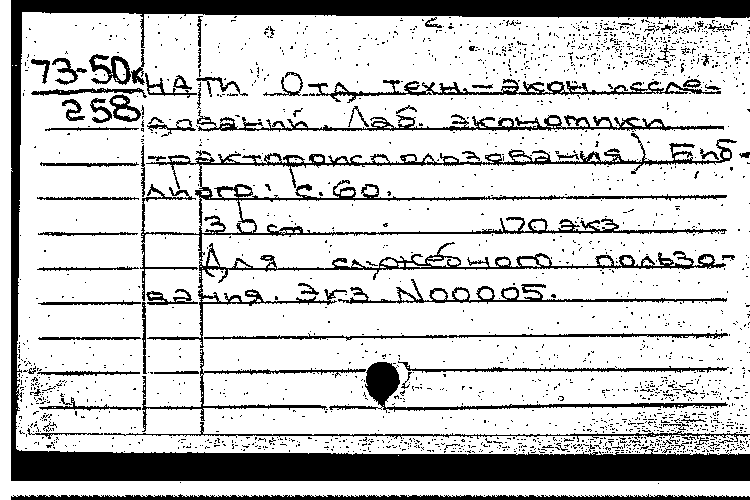 73-50к НАТИ Отд. техн.-экон. иссле-
258
дований. Лаб. экономики
тракотороиспользования) Биб-
лиогр.: с. 60.
30 см. 170 экз
Для служебного пользо-
вания. Экз N00005.